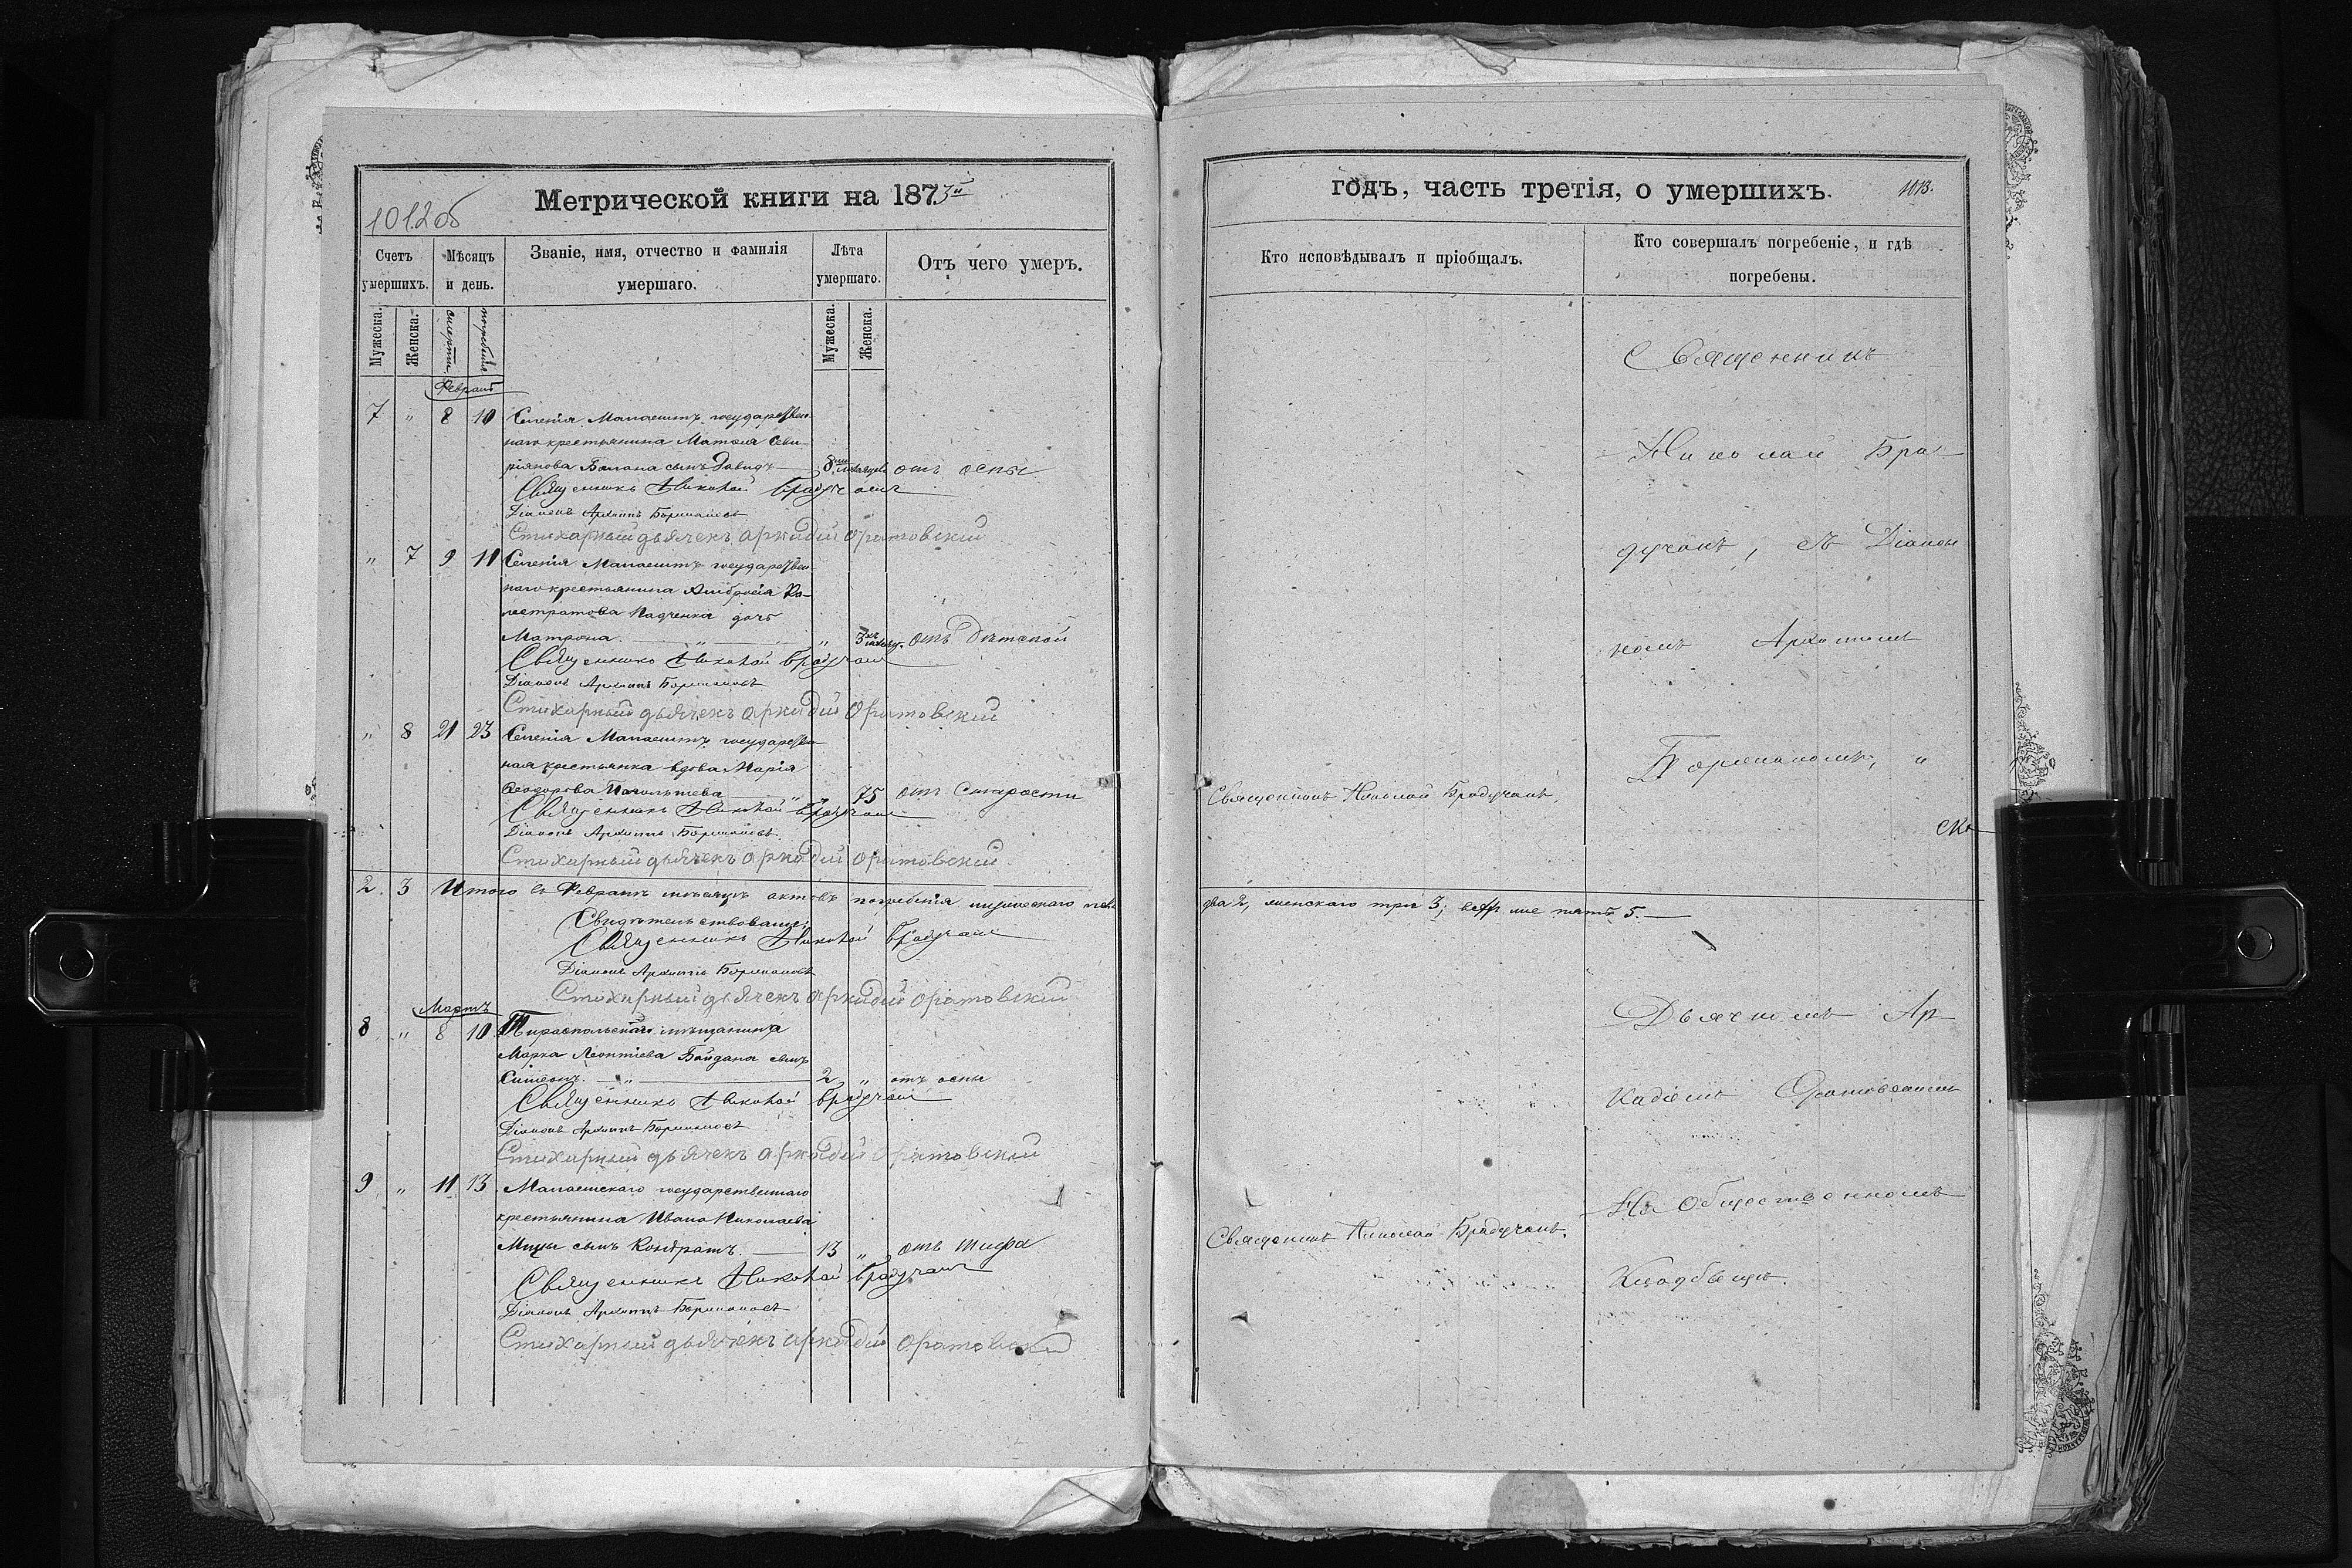 Метрической книги на 1873й
1012об
Счетъ умершихъ.
Мѣсяцъ и день.
Званіе, имя, отчество и фамилія умершаго.
Лѣта умершаго.
Отъ чего умеръ.
Мужеска.
Женска.
смерти.
погребенія.
Мужеска.
Женска.
Февраль
7 " 8 10 Селенія Малаештъ государствен-
наго крестьянина Матвея Севи-
ріянова Балана сынъ Давидъ 8 мѣсяцевъ отъ оспы
Священникъ Николай Брадучанъ
Діаконъ Архиппъ
Стихарный дьячекъ Аркадій Оратовский
" 7 9 11 Селенія Малаештъ государствен-
наго крестьянина Амбросія Ка-
листратова дочь
Матрона " " 3 мѣсяц. отъ Дѣтской
Священникъ Николай Брадучанъ
Діаконъ Архиппъ
Стихарный дьячекъ Аркадий Оратовский
" 8 21 23 Селенія Малаештъ государствен-
ная крестьянка вдова Марія
Ѳеодорова " 75 отъ Старости
Священникъ Николай Брадучанъ
Діаконъ Архиппъ
Стихарный дьячекъ Аркадий Оратовский
2. 3 Итого въ Февралѣ мѣсяцѣ актовъ погребенія мужескаго пола
Свидѣтельствовали:
Священникъ Николай Брадучанъ
Діаконъ Архиппъ
Стихарный дьячекъ Аркадий Оратовский
Мартъ
8 " 8 10 Тираспольскаго мѣщанина
Марка Леонтіева Байдана сынъ
Симеонъ. " 2 " отъ оспы
Священникъ Николай Брадучанъ
Діаконъ Архиппъ
Стихарный дьячекъ Аркадий Оратовский
9 " 11 13 Малаештскаго государственнаго
крестьянина Ивана Николаева
Мицы сынъ Кондратъ. 13 " отъ тифа
Священникъ Николай Брадучанъ
Діаконъ Архиппъ
Стихарный дьячекъ Аркадий Оратовский
годъ, часть третія, о умершихъ.
1013.
Кто исповѣдывалъ и пріобщалъ.
Кто совершалъ погребеніе, и гдѣ погребены.
Священникъ
Николай Бра
дучанъ, съ Діако
номъ Архипомъ
и
Священникъ Николай Брадучанъ
два 2, женскаго три 3; всѣхъ же пять 5.
Дьячкомъ Ар
кадіемъ Оратовскимъ
На Общественномъ
Священникъ Николай Брадучанъ.
Кладбищѣ.